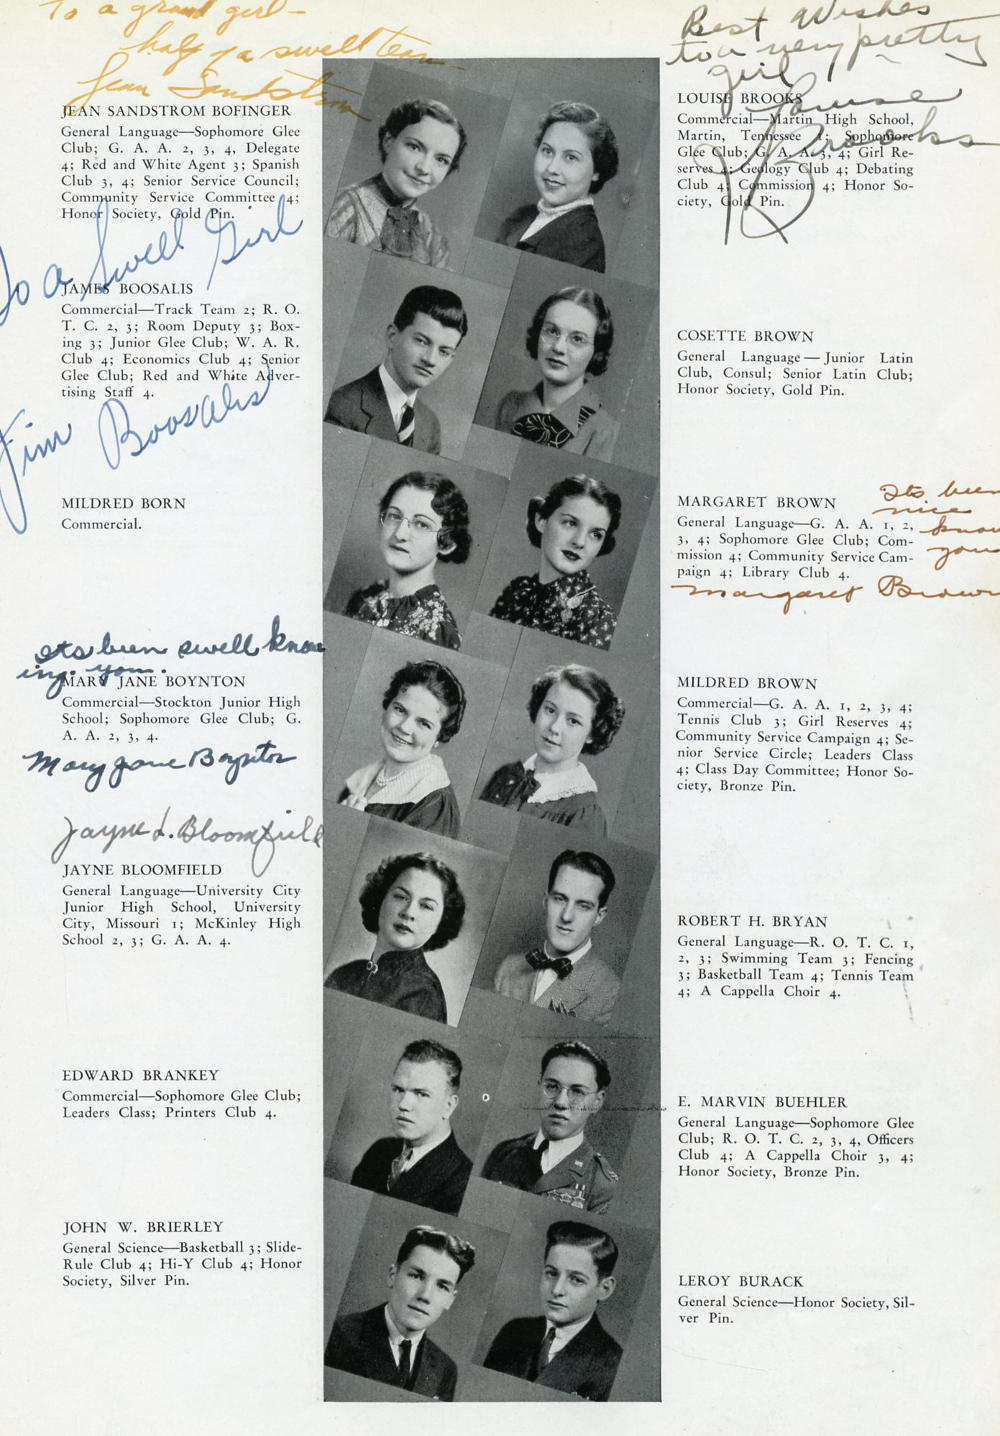 To a grand girl-
half of a swell team-
Jean Sandstrom
JEAN SANDSTROM BOFINGER
General Language—Sophomore Glee
Club; G. A. A. 2, 3, 4, Delegate
4; Red and White Agent 3; Spanish
Club 3, 4; Senior Service Council;
Community Service Committee 4;
Honor Society, Gold Pin.
To a Swell Girl
JAMES BOOSALIS
Commercial—Track Team 2; R. O.
T. C. 2, 3; Room Deputy 3; Box-
ing 3; Junior Glee Club; W. A. R.
Club 4; Economics Club 4; Senior
Glee Club; Red and White Adver-
tising Staff 4.
Jim Boosalis
MILDRED BORN
Commercial.
Its been swell know
ing you.
MARY JANE BOYNTON
Commercial—Stockton Junior High
School; Sophomore Glee Club; G.
A. A. 2, 3, 4.
Mary Jane Boynton
Jayne L. Bloomfield
JAYNE BLOOMFIELD
General Language—University City
Junior High School, University
City, Missouri 1; McKinley High
School 2, 3; G. A. A. 4.
EDWARD BRANKEY
Commercial—Sophomore Glee Club;
Leaders Class; Printers Club 4.
JOHN W. BRIERLEY
General Science—Basketball 3; Slide-
Rule Club 4; Hi-Y Club 4; Honor
Society, Silver Pin.
Best Wishes
to a very pretty
girl
Louise
Brooks
LOUISE BROOKS
Commercial—Martin High School,
Martin, Tennessee 1; Sophomore
Glee Club; G. A. A. 3, 4; Girl Re-
serves 4; Geology Club 4; Debating
Club 4; Commission 4; Honor So-
ciety, Gold Pin.
COSETTE BROWN
General Language—Junior Latin
Club, Consul; Senior Latin Club;
Honor Society, Gold Pin.
Its been
nice
know
you
MARGARET BROWN
General Language—G. A. A. 1, 2,
3, 4; Sophomore Glee Club; Com-
mission 4; Community Service Cam-
paign 4; Library Club 4.
Margaret Brown
MILDRED BROWN
Commercial—G. A. A. 1, 2, 3, 4;
Tennis Club 3; Girl Reserves 4;
Community Service Campaign 4; Se-
nior Service Circle; Leaders Class
4; Class Day Committee; Honor So-
ciety, Bronze Pin.
ROBERT H. BRYAN
General Language—R. O. T. C. 1,
2, 3; Swimming Team 3; Fencing
3; Basketball Team 4; Tennis Team
4; A Cappella Choir 4.
E. MARVIN BUEHLER
General Language—Sophomore Glee
Club; R. O. T. C. 2, 3, 4, Officers
Club 4; A Cappella Choir 3, 4;
Honor Society, Bronze Pin.
LEROY BURACK
General Science—Honor Society, Sil-
ver Pin.